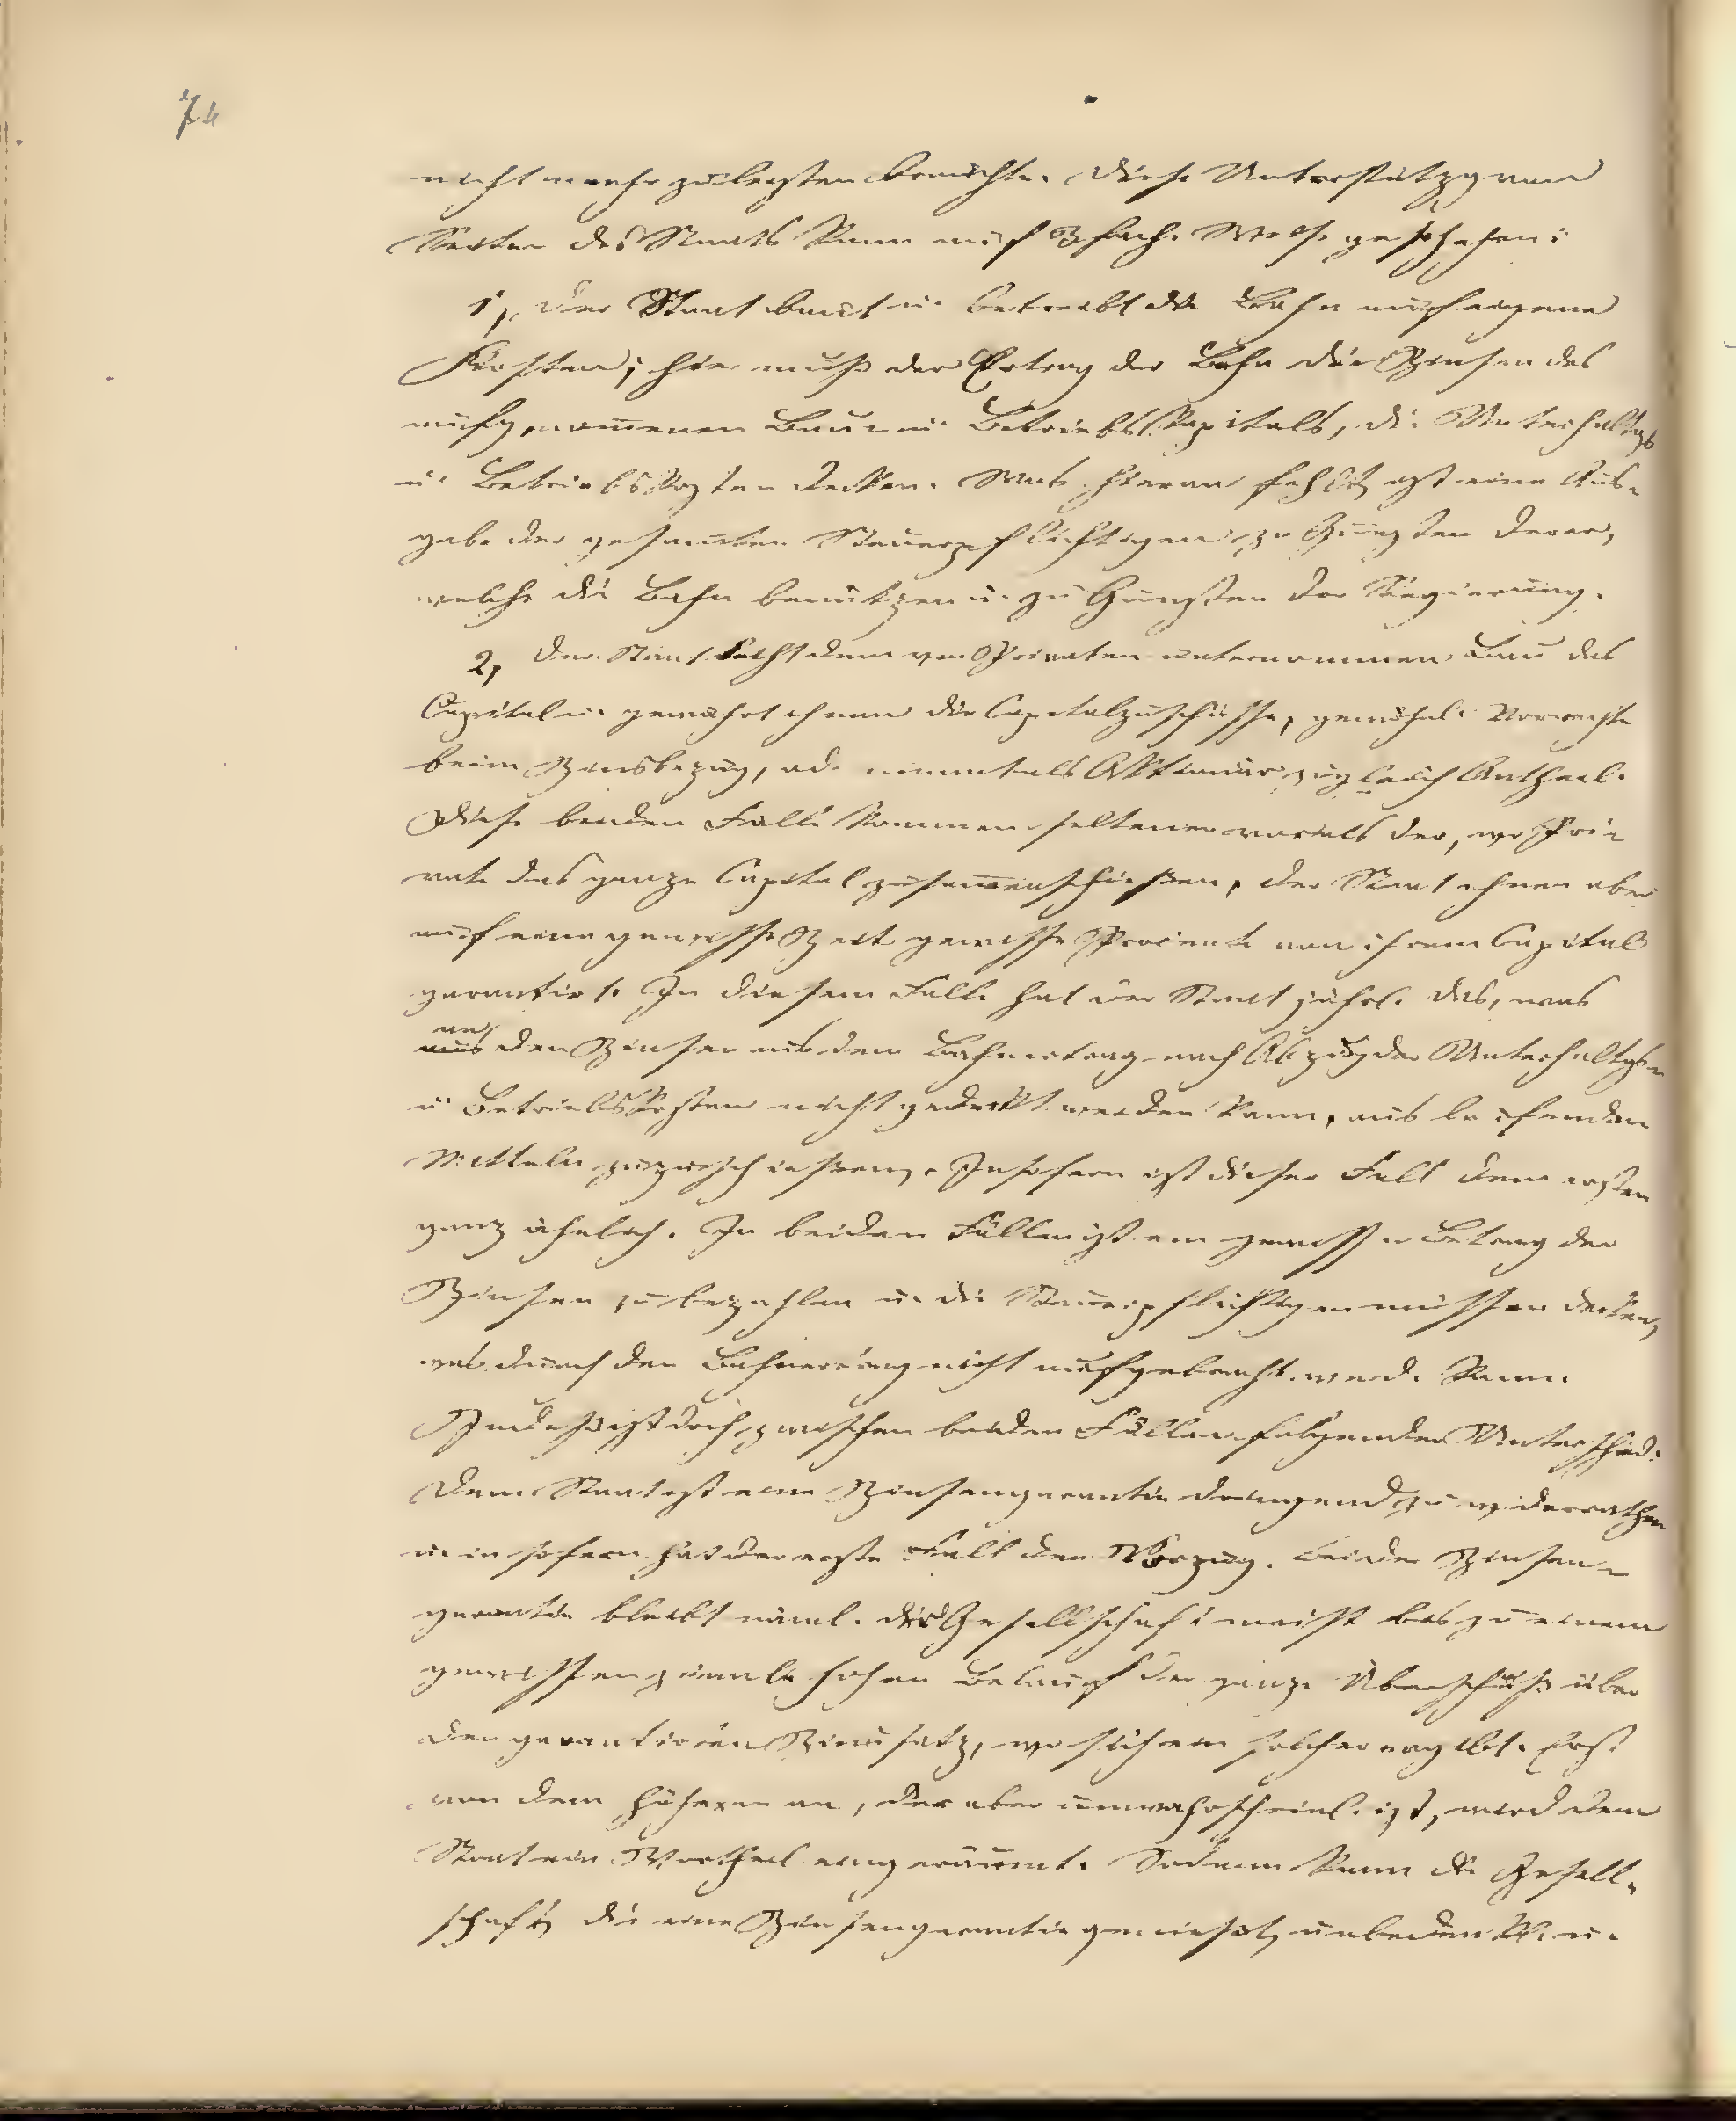 74
nicht mehr zu leisten brauchte. Diese Unterstützg von
Seiten des Staats kann auf 3fache Weise geschehen:
1, der Staat baut u. betreibt die Bahn auf eigene
Kosten; hier muß der Ertrag der Bahn die Zinsen des
aufgenom̅enen Bau= u. Betriebskapitals, die Unterhaltgs
u. Betriebskosten decken. Was hieran fehlt, ist eine Aus=
gabe der gesam̅ten Steuerpflichtigen zu Gunsten derer,
welche die Bahn benützen u. zu Gunsten der Regierung.
2, Der Staat leiht dem von Privaten unternommen. Bau das
Capital u. gewährt ihnen die Capitalzuschüsse, gewöhnl. Vorrechte
beim Zinsbezug, od. nimmt als Aktionär zugleich Antheil.
Diese beiden Fälle kommen seltener vor als der, wo Pri=
vate das ganze Capital zusam̅enschießen, der Staat ihnen aber
auf eine gewisse Zeit gewisse Procente von ihrem Capital
garantirt. In diesem Falle hat der Staat jährl. das, was
an
aus den Zinsen aus dem Bahnertrag nach Abzug der Unterhaltgs=
u Betriebskosten nicht gedeckt werden kann, aus laufenden
Mitteln zuzuschießen. Insofern ist dieser Fall dem ersten
ganz ähnlich. In beiden Fällen ist ein gewisser Betrag der
Zinsen zu bezahlen u. die Steuerpflichtigen müssen decken,
was durch den Bahnertrag nicht aufgebracht werd. kann.
Indeß ist doch zwischen beiden Fällen folgender Unterschied:
Dem Staat ist eine Zinsengarantie dringend zu widerrathen
u. in sofern hat der erste Fall den Vorzug. Bei der Zinsen=
garantie bleibt näml. der Gesellschaft meist bis zu einem
gewissen ziemlich hohen Belauf der ganze Überschuß über
den garantirten Zinssatz, wo sich ein solcher ergibt. Erst
von dem höheren an, der aber unwahrscheinl. ist, wird dem
Staat ein Vortheil eingeräumt. Sodann kann die Gesell=
schaft, die eine Zinsengarantie genießt, unbedenkl. u.